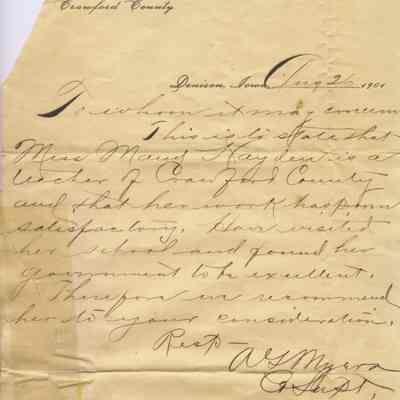 Crawford County
Denison, Iowa, Aug 26 1901
To whom it may concern
This is to state that
Miss Maud Hayden is a
teacher of Crawford County
and that her work has been
satisfactory. Have visited
her school and found her
government to be excellent.
Therefore we recommend
her to your consideration.
Resp—
A G Myers
Co Supt.